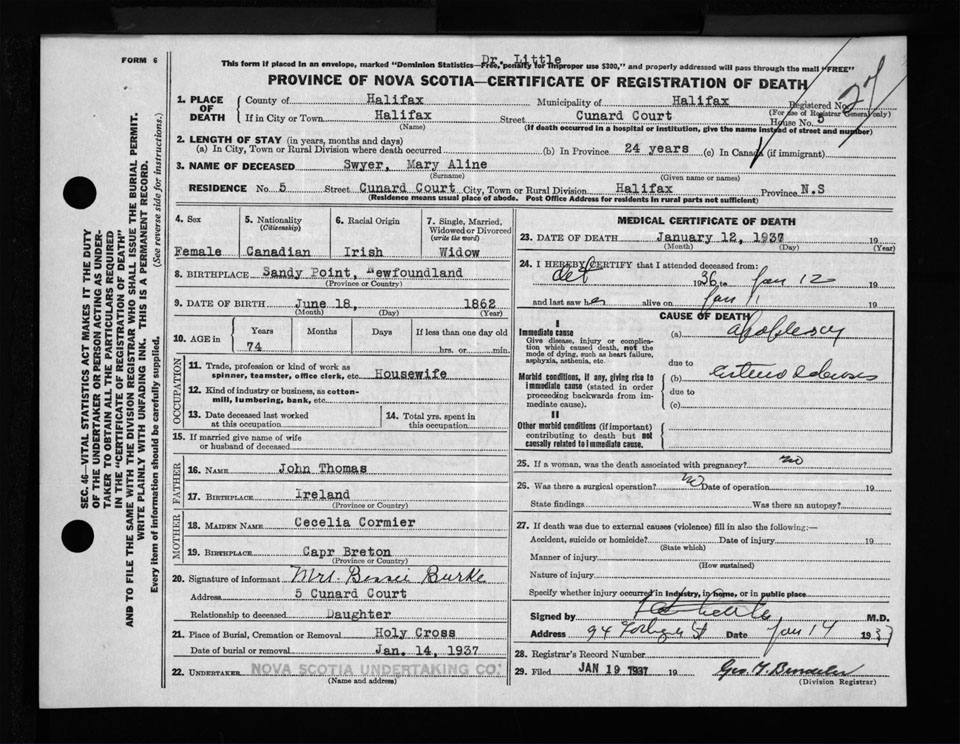 FORM 6
Dr. Little
This form if placed in an envelope, marked "Dominion Statistics—Free, penalty for improper use $300," and properly addressed will pass through the mail "FREE"
PROVINCE OF NOVA SCOTIA—CERTIFICATE OF REGISTRATION OF DEATH
SEC. 46—VITAL STATISTICS ACT MAKES IT THE DUTY
OF THE UNDERTAKER OR PERSON ACTING AS UNDER-
TAKER TO OBTAIN ALL THE PARTICULARS REQUIRED
IN THE "CERTIFICATE OF REGISTRATION OF DEATH"
AND TO FILE THE SAME WITH THE DIVISION REGISTRAR WHO SHALL ISSUE THE BURIAL PERMIT.
WRITE PLAINLY WITH UNFADING INK. THIS IS A PERMANENT RECORD.
Every item of information should be carefully supplied. (See reverse side for instructions.)
1. PLACE OF DEATH County of Halifax Municipality of Halifax Registered No. 27
(For use of Registrar General only)
If in City or Town Halifax Street Cunard Court House No. 5
(Name) (If death occurred in a hospital or institution, give the name instead of street and number)
2. LENGTH OF STAY (in years, months and days)
(a) In City, Town or Rural Division where death occurred (b) In Province 24 years (c) In Canada (if immigrant)
3. NAME OF DECEASED Swyer, Mary Aline
(Surname) (Given name or names)
RESIDENCE No. 5 Street Cunard Court City, Town or Rural Division Halifax Province N.S
(Residence means usual place of abode. Post Office Address for residents in rural parts not sufficient)
4. Sex 5. Nationality (Citizenship) 6. Racial Origin 7. Single, Married, Widowed or Divorced (write the word)
Female Canadian Irish Widow
8. BIRTHPLACE Sandy Point, Newfoundland
(Province or Country)
9. DATE OF BIRTH June 18, 1862
(Month) (Day) (Year)
10. AGE in Years Months Days If less than one day old
74 hrs. or min.
OCCUPATION
11. Trade, profession or kind of work as
spinner, teamster, office clerk, etc. Housewife
12. Kind of industry or business, as cotton-
mill, lumbering, bank, etc.
13. Date deceased last worked
at this occupation
14. Total yrs. spent in
this occupation
15. If married give name of wife
or husband of deceased
FATHER
16. NAME John Thomas
17. BIRTHPLACE Ireland
(Province or Country)
MOTHER
18. MAIDEN NAME Cecelia Cormier
19. BIRTHPLACE Capr Breton
(Province or Country)
20. Signature of informant Mrs. Bessie Burke
Address 5 Cunard Court
Relationship to deceased Daughter
21. Place of Burial, Cremation or Removal Holy Cross
Date of burial or removal Jan. 14, 1937
22. UNDERTAKER NOVA SCOTIA UNDERTAKING CO.
(Name and address)
MEDICAL CERTIFICATE OF DEATH
23. DATE OF DEATH January 12, 1937 19
(Month) (Day)
24. I HEREBY CERTIFY that I attended deceased from:
1936 to Jan 12 19
and last saw her alive on Jan 11 19
CAUSE OF DEATH
I
Immediate cause
Give disease, injury or complica-
tion which caused death, not the
mode of dying, such as heart failure,
asphyxia, asthenia, etc.
(a) apoplexy
due to
Morbid conditions, if any, giving rise to
immediate cause (stated in order
proceeding backwards from im-
mediate cause).
(b)
due to
(c)
II
Other morbid conditions (if important)
contributing to death but not
causally related to immediate cause.
25. If a woman, was the death associated with pregnancy? no
26. Was there a surgical operation? no Date of operation 19
State findings Was there an autopsy?
27. If death was due to external causes (violence) fill in also the following:—
Accident, suicide or homicide? Date of injury 19
(State which)
Manner of injury
(How sustained)
Nature of injury
Specify whether injury occurred in industry, in home, or in public place
Signed by M.D.
Address 94 Date Jan 14 1937
28. Registrar's Record Number
29. Filed JAN 19 1937 19
(Division Registrar)